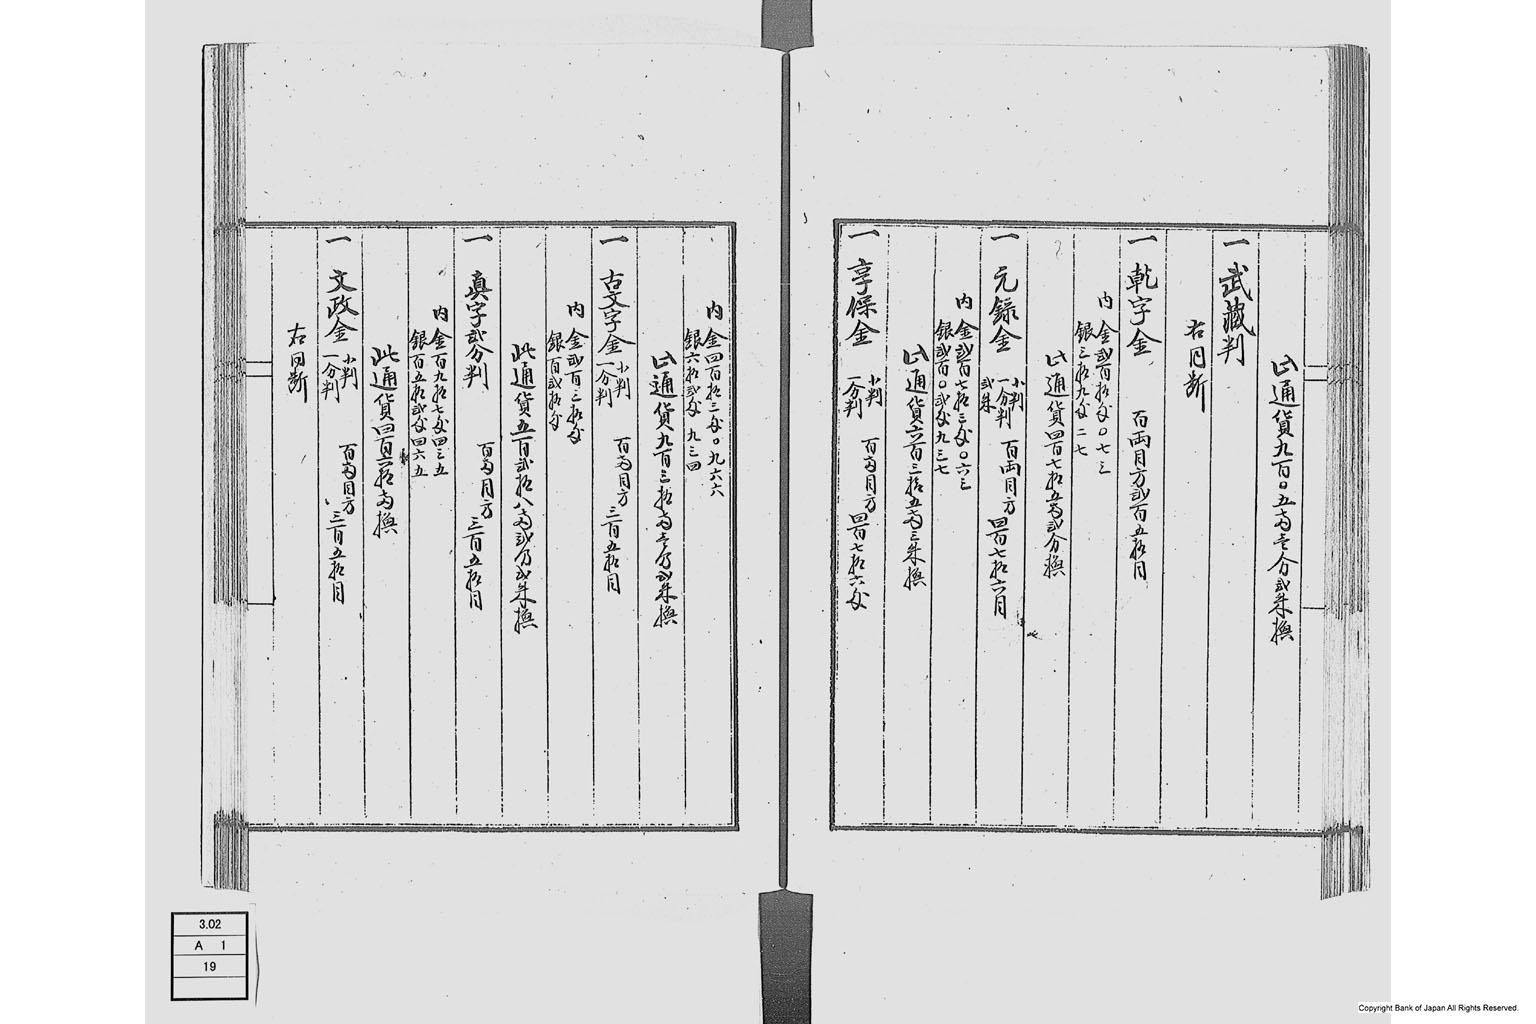 此通貨九百〇五両壱分弐朱換
一 武蔵判
右同断
一 乾字金 百両目方弐百五拾目
内 金弐百拾匁〇七三
銀三拾九匁二七
此通貨四百七拾五両弐分換
一 元録金 小判 一分判 弐朱 百両目方四百七拾六目
内 金弐百七拾三匁〇六三
銀弐百〇弐匁九三七
此通貨六百三拾五両三朱換
一 享保金 小判 一分判 百両目方四百七拾六匁
内 金四百拾三匁〇九六六
銀六拾弐匁九三四
此通貨九百三拾両壱分弐朱換
一 古文字金 小判 一分判 百両目方三百五拾目
内 金弐百三拾匁
銀百弐拾匁
此通貨五百弐拾八両弐分弐朱換
一 真字弐分判 百両目方三百五拾目
内 金百九拾七匁四三五
銀百五拾弐匁四六五
此通貨四百六拾両換
一 文政金 小判 一分判 百両目方三百五拾目
右同断
3.02
A 1
19
Copyright Bank of Japan All Rights Reserved.